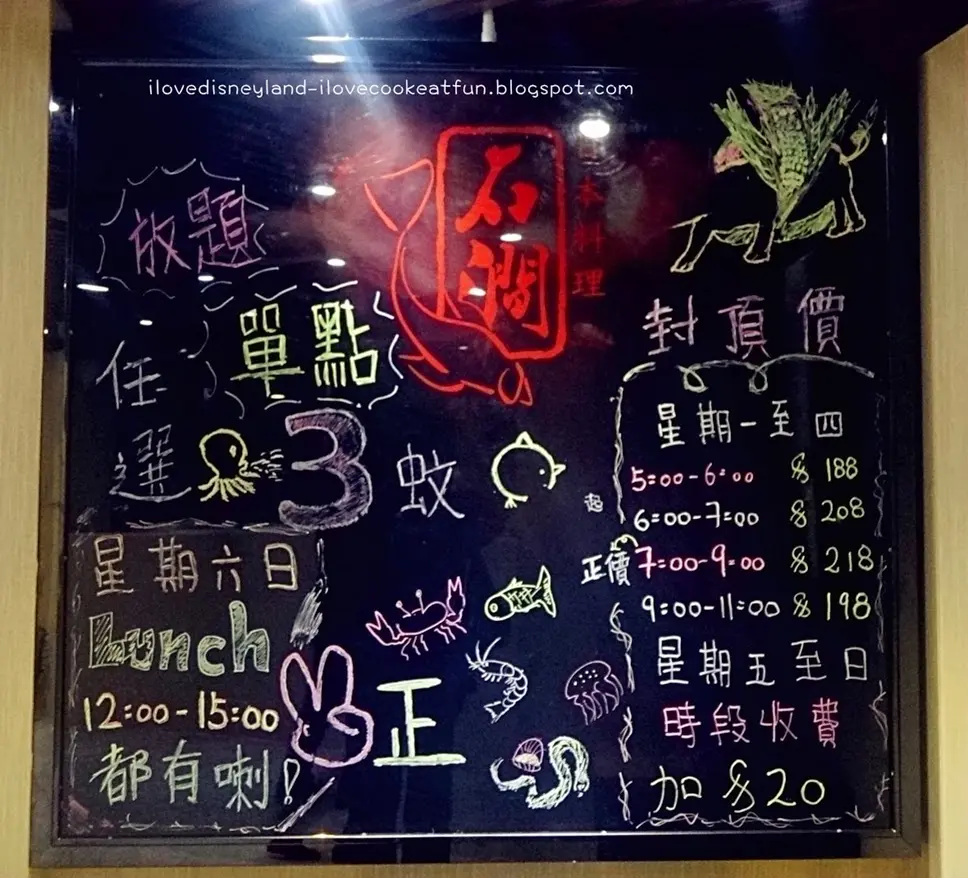 ilovedisneyland-ilovecookeatfun.blogspot.com
石澗
日本料理
放題
單點
任選 3 蚊 起
星期六日
Lunch
12:00-15:00
都有喇!
正
封頂價
星期一至四
5:00-6:00 $188
6:00-7:00 $208
正價 7:00-9:00 $218
9:00-11:00 $198
星期五至日
時段收費
加 $20